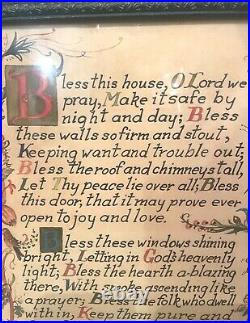 Bless this house, O Lord we
pray, Make it safe by
night and day; Bless
these walls so firm and stout,
Keeping want and trouble out;
Bless the roof and chimneys tall,
Let Thy peace lie over all; Bless
this door, that it may prove ever
open to joy and love.
Bless these windows shining
bright, Letting in God's heavenly
light; Bless the hearth a-blazing
there, With smoke ascending like
a prayer; Bless the folk who dwell
within, Keep them pure and